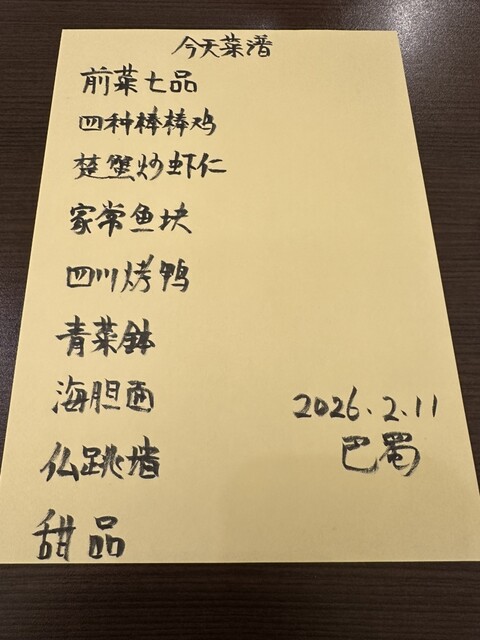 今天菜潽
前菜七品
四种棒棒鸡
楚蟹炒虾仁
家常鱼块
四川烤鸭
青菜鉢
海胆面
仏跳墙
甜品
2026.2.11
巴蜀